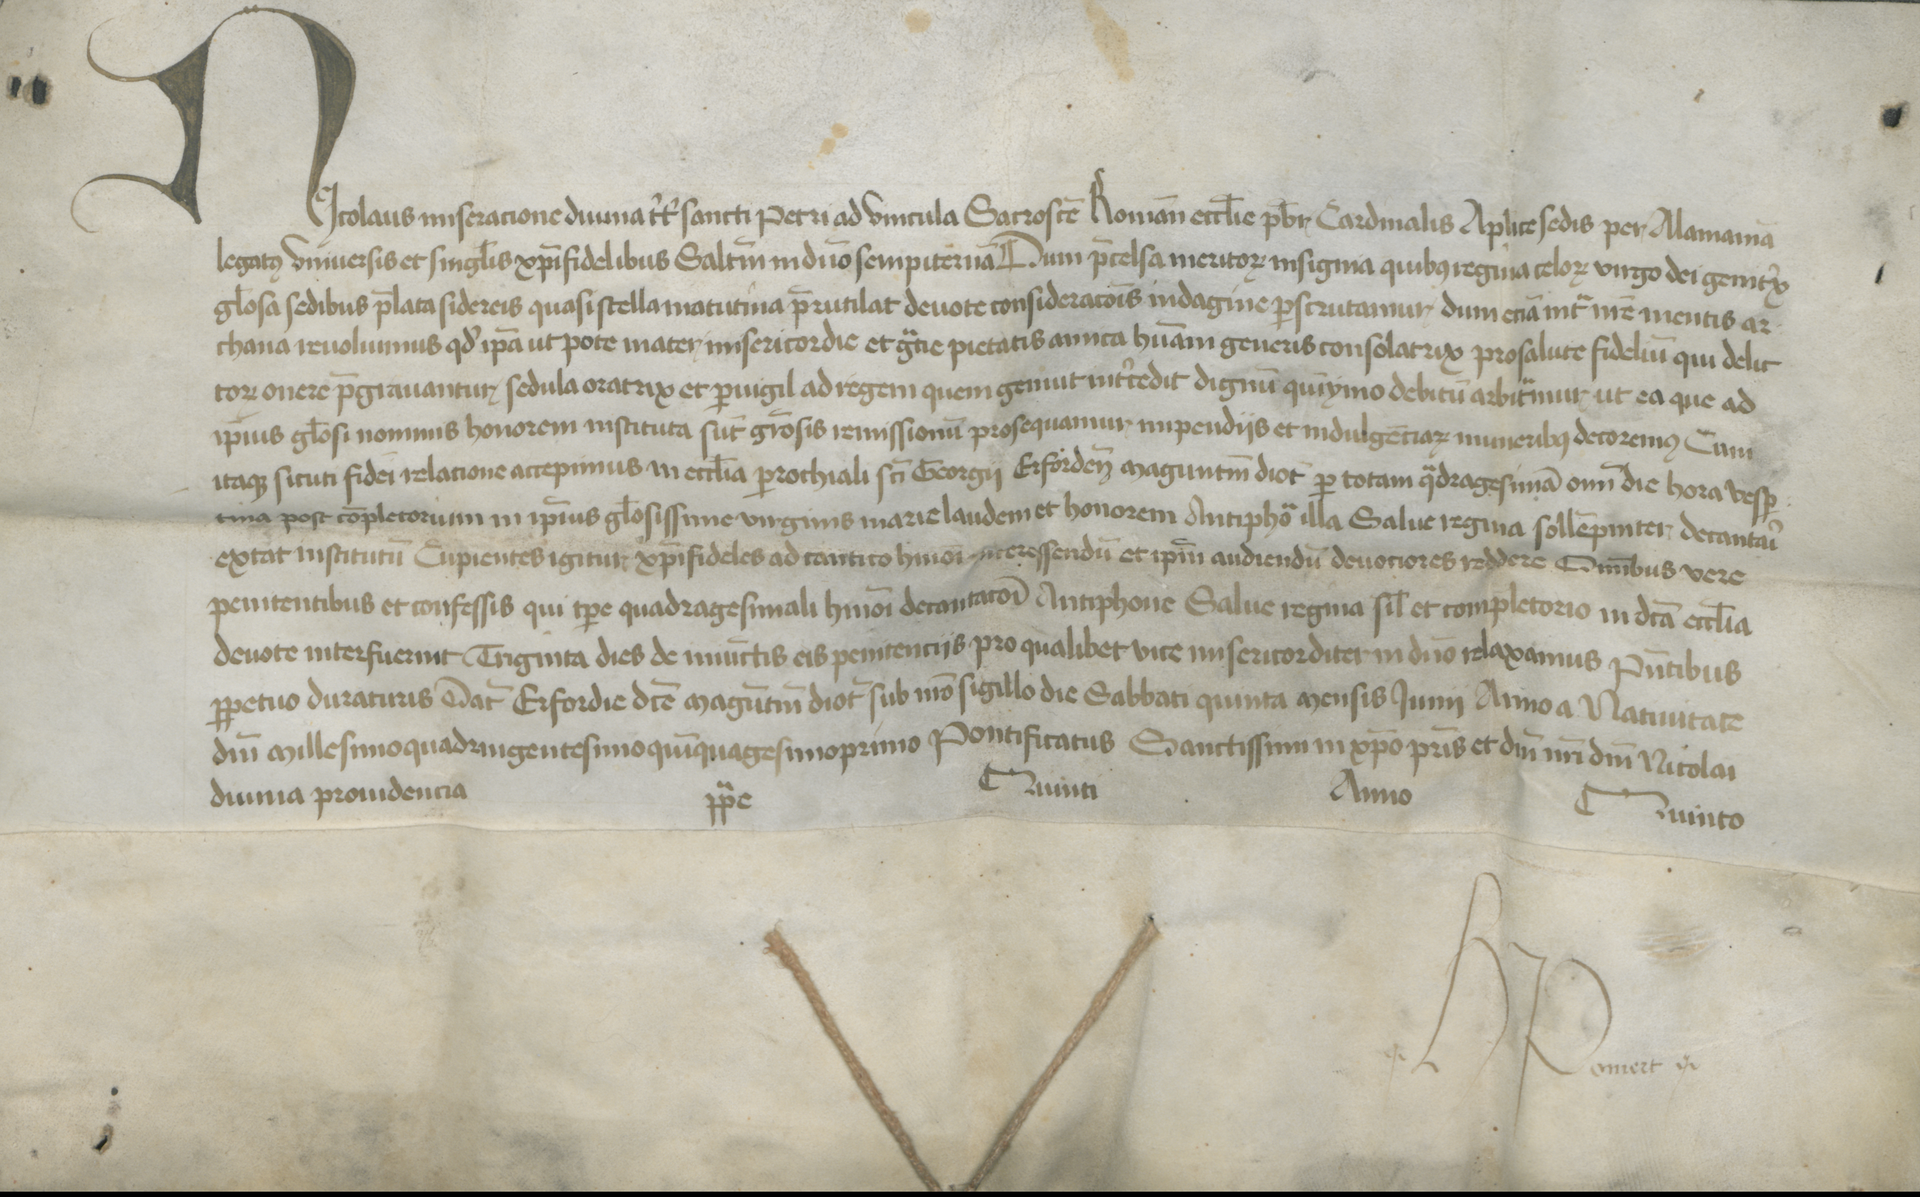 Nicolaus miseracione diuina tt̄ sancti Petri ad vincula Sacroscē Romañ eccl̄ie pb̄r Cardinalis Aplice sedis per Alamaniā
legatꝯ vniuersis et singl̄is xp̄ifidelibus Salt̄m in dn̄o sempiternā Dum p̄celsa meritoꝝ insignia quibꝯ regina celoꝝ virgo dei genitⁱx
gl̄osa sedibus p̄lata sidereis quasi stella matutina p̄rutilat deuote consideracōis indagine ꝑscrutamur dum eciā intᵃ nr̄e mentis ar
chana reuoluimus qd̓ ip̄a ut pote mater misericordie et gr̄cie pietatis amica hūani generis consolatrix pro salute fideliū qui delic
toꝝ onere p̄grauantur sedula oratrix et ꝑuigil ad regem quem genuit int̓cedit dignū quīymo debitū arbitᵃmur ut ea que ad
ip̄ius gl̄osi nominis honorem instituta sūt gr̄osis remissionū prosequamur impendijs et indulgēciaꝝ muneribꝯ decoremꝯ Cum
itaqꝫ sicuti fidei relacione accepimus in eccl̄ia ꝑrochiali sc̄i Georgij Erfordeñ Maguntiñ dioc̄ ꝑ totam qᵃdragesimā omī die hora vesꝑ
tina post cōpletorium in ip̄ius gl̄osissime virginis marie laudem et honorem Antiphoᵃ illa Salue regina sollēpniter decantaī
extat institutū Cupientes igitur xp̄ifideles ad cantico hmōi interessendū et ip̄m audiendū deuociores reddere Om̄ibus vere
penitentibus et confessis qui tꝑe quadragesimali hmōi decantacōi Antiphone Salue regina sil̄ et completorio in dc̄a eccl̄ia
deuote interfuerint Triginta dies de iniūctis eis penitencijs pro qualibet vice misericorditer in dn̄o relaxamus Pn̄tibus
ꝑpetuo duraturis Dat̄ Erfordie dc̄e Magūtiñ dioc̄ sub nr̄o sigillo die Sabbati quinta Mensis Junij Anno a Natiuitate
dn̄i Millesimoquadringentesimoquīquagesimoprimo Pontificatus Sanctissimi in xp̄o pr̄is et dn̄i nr̄i dn̄i Nicolai
diuina prouidencia pp̄e Quinti Anno Quinto
H Pomert